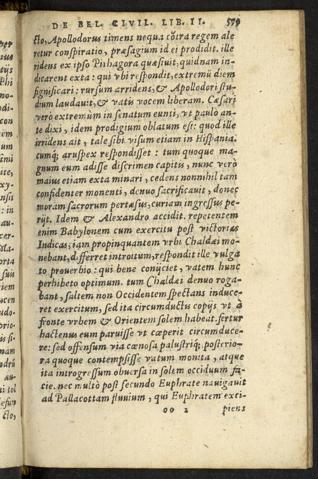 DE BEL. CIVIL. LIB. II. 579
cto, Apollodorus timens ne qua cōtra regem ale
retur conspiratio, præsagium id ei prodidit. ille
ridens ex ipso Pithagora quæsiuit, quidnam in-
dicarent exta: qui vbi respondit, extremū diem
significari: rursum arridens, & Apollodori stu-
dium laudauit, & vatis vocem liberam. Cæsari
verò extremùm in senatum eunti, vt paulo an-
te dixi, idem prodigium oblatum est: quod ille
irridens ait, tale sibi visum etiam in Hispania.
cumq; aruspex respondisset: tum quoque ma-
gnum eum adisse discrimen capitis, nunc verò
maius etiam exta minari, cedens nonnihil tam
confidenter monenti, denuo sacrificauit, donec
moram sacrorum pertæsus, curiam ingressus pe-
rijt. Idem & Alexandro accidit. repetentem
enim Babylonem cum exercitu post victorias
Indicas, iam propinquantem vrbi Chaldæi mo-
nebant, differret introitum, respondit ille vulga
to prouerbio: qui bene conijciet, vatem hunc
perhibeto optimum. tum Chaldæi denuo roga-
bant, saltem non Occidentem spectans induce-
ret exercitum, sed ita circumductis copijs vt à
fronte vrbem & Orientem solem habeat. fertur
hactenus eum paruisse vt cœperit circumduce-
re: sed offensum via cœnosa palustriq; posterio-
ra quoque contempsisse vatum monita, atque
ita introgressum obuersa in solem occiduum fa-
cie. nec multò post secundo Euphrate nauigauit
ad Pallacottam fluuium, qui Euphratem exci-
oo 2 piens